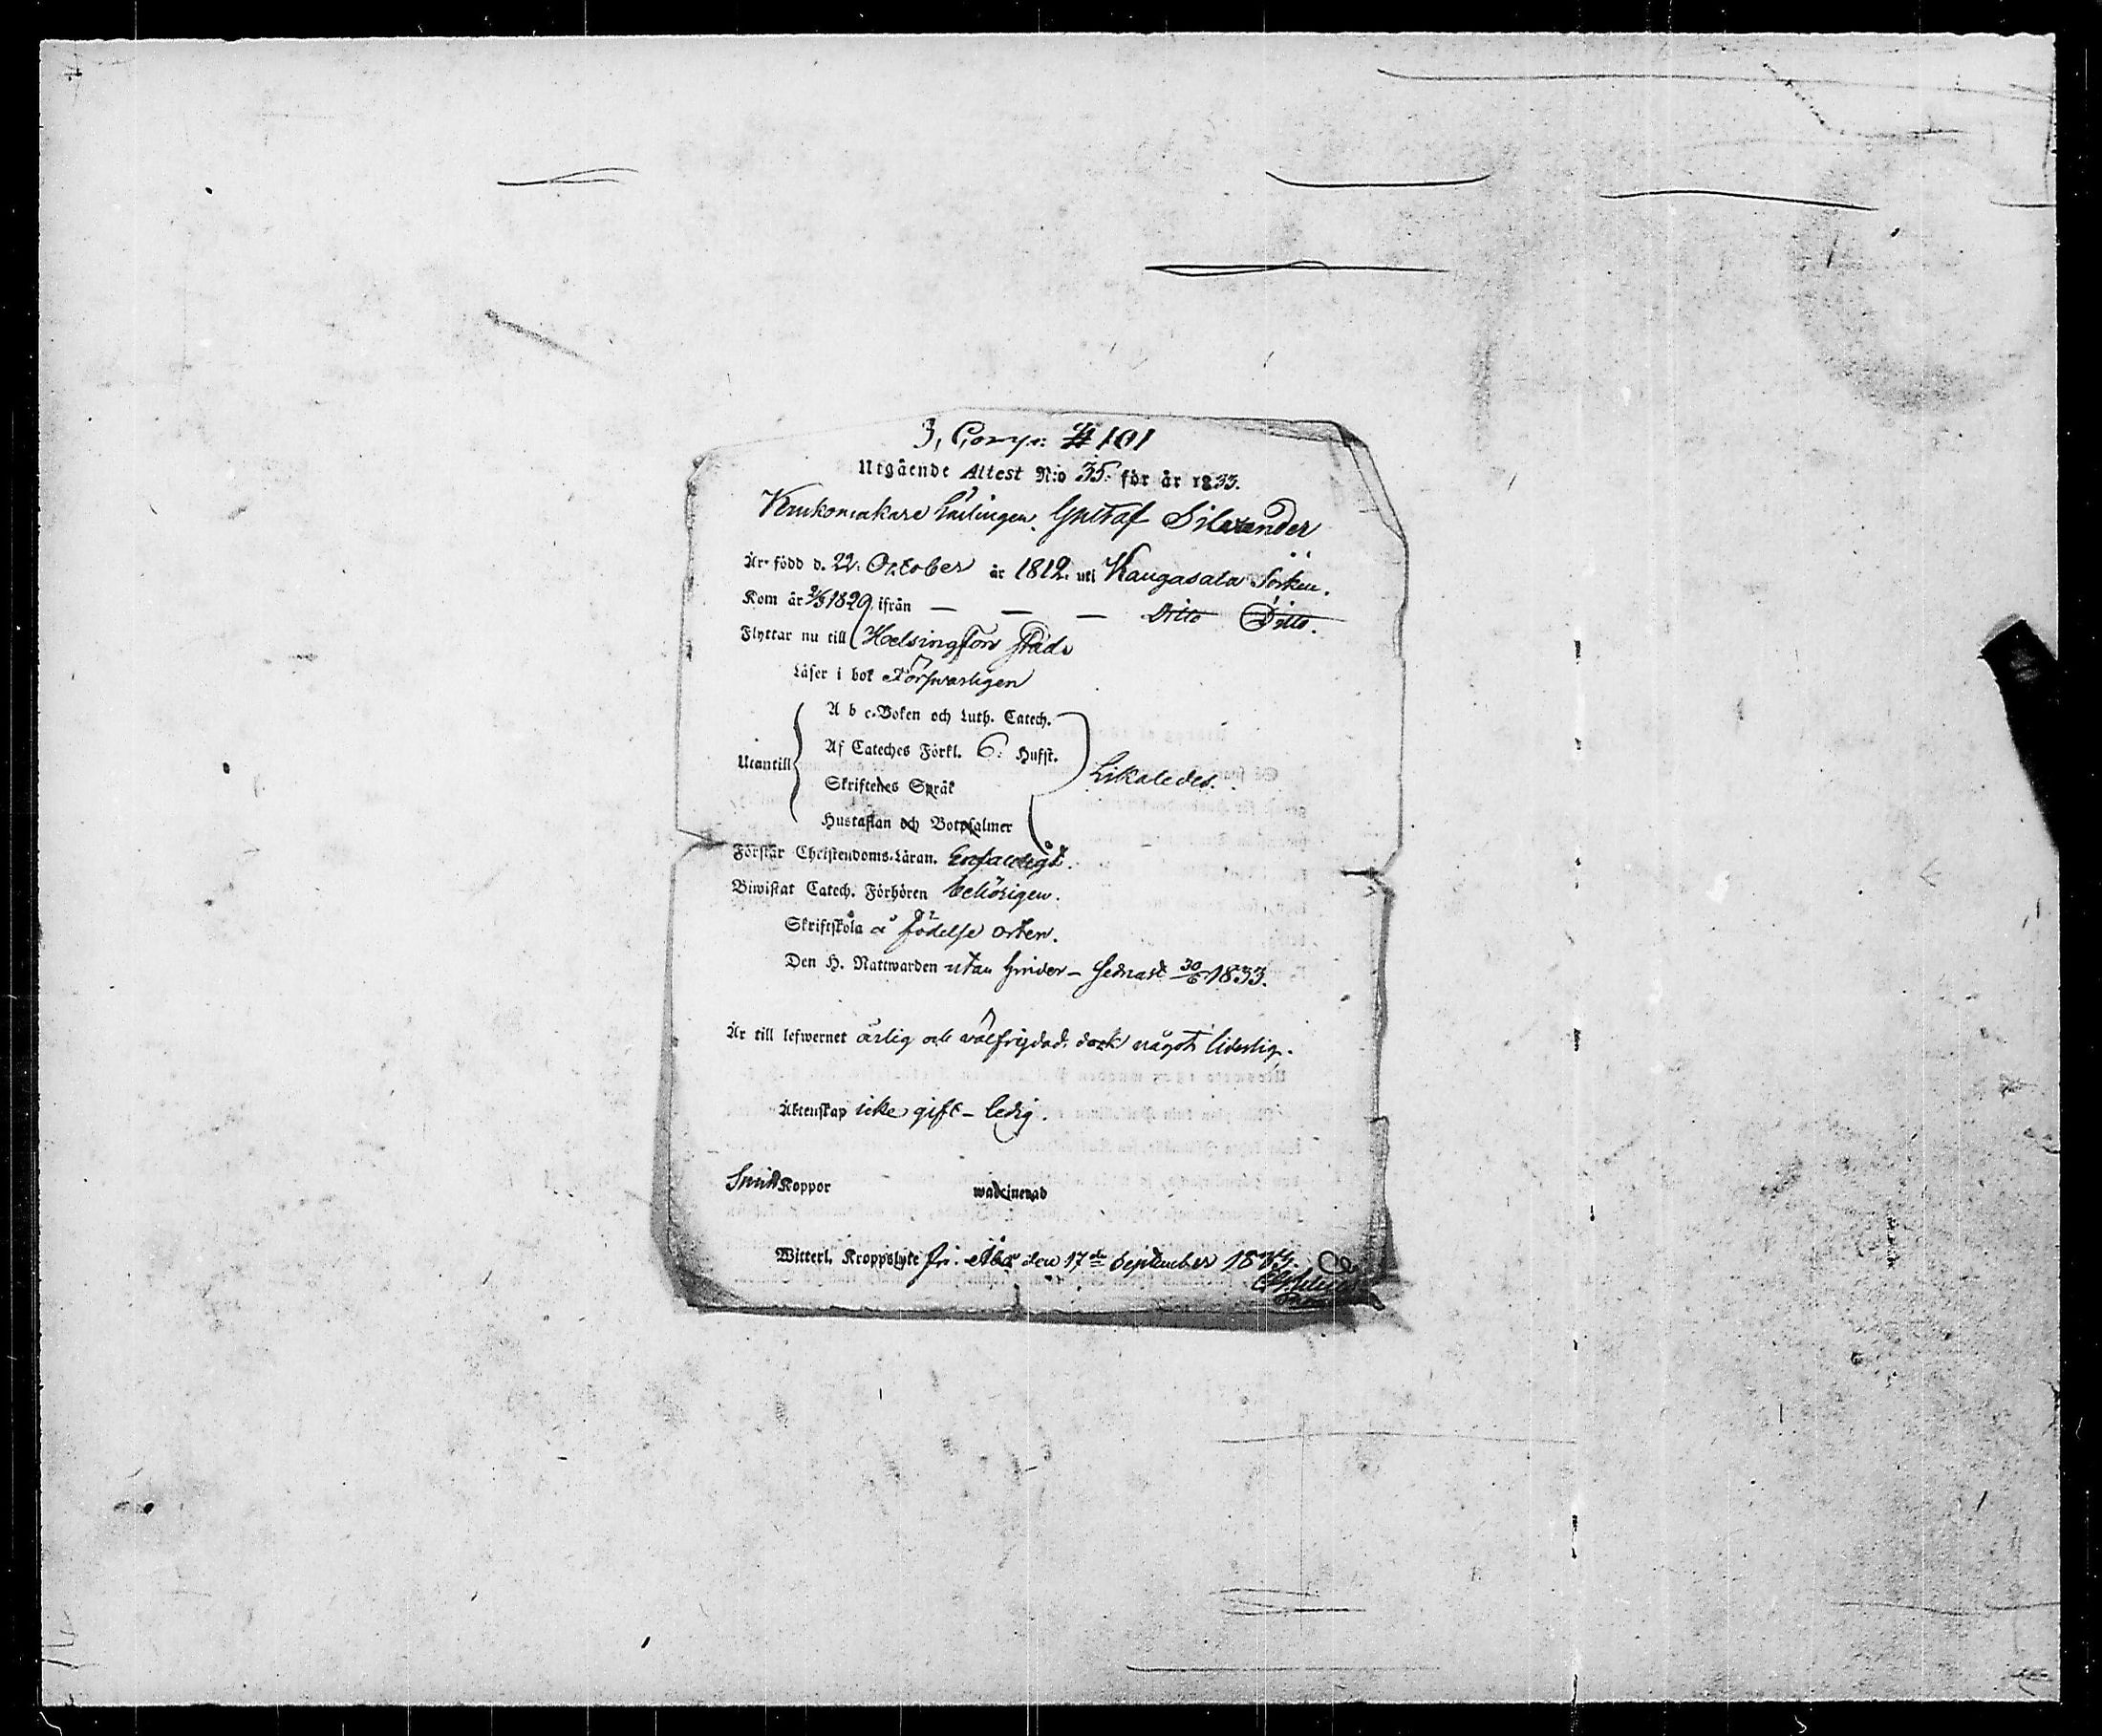 3, Comp: # 101
Utgående Attest N:o 35. för år 1833.
Krukomakare Lärlingen. Gustaf Silvander
Är född d. 22. October år 1812. uti Kangasala Socken.
Kom år 1829. ifrån — — — Ditto Ditto.
Flyttar nu till Helsingfors stad.
Läser i bok Försvarligen
A b c-Boken och Luth. Catech.
Af Cateches Förkl. 6. Hufst.
Utantill
Likaledes.
Skriftenes Språk
Hustaflan och Botpsalmer
Förstår Christendoms-Läran. Enfaldigt.
Biwistat Catech. Förhören behörigen.
Skriftskola å födelse orten.
Den H. Nattwarden utan hinder – sednast 30/6 1833.
Är till lefwernet ärlig och välfrejdad. dock något liderlig.
Äktenskap icke gift – ledig.
Smitt Koppor waccinerad
Witterl. Kroppslyte fri. Åbo den 17de September 18